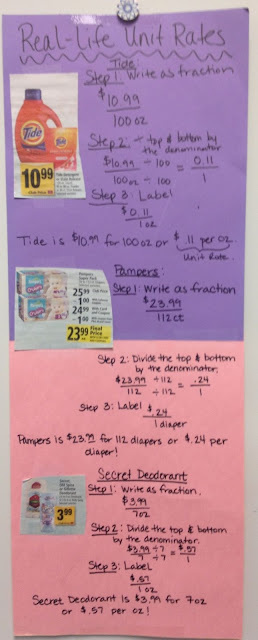 Real-Life Unit Rates
Tide:
Step 1: Write as fraction
$10.99
100 oz
Tide
10 99
Step 2: ÷ top & bottom by
the denominator
$10.99 ÷ 100 = 0.11
100 oz ÷ 100 1
Step 3: Label
$0.11
1 oz
Tide is $10.99 for 100 oz or $.11 per oz.
Unit Rate
Pampers:
Step 1: Write as fraction
$23.99
112 ct
Pampers
25 99
-1 00
24 99
-1 00
23 99 Final Price
Step 2: Divide the top & bottom
by the denominator.
$23.99 ÷ 112 = .24
112 ÷ 112 1
Step 3: Label $.24
1 diaper
Pampers is $23.99 for 112 diapers or $.24 per
diaper!
Secret Deodorant
Step 1: Write as fraction.
$3.99
7oz
3 99
Step 2: Divide the top & bottom
by the denominator.
$3.99 ÷ 7 = $.57
7 ÷ 7 1
Step 3: Label
$.57
1 oz
Secret Deodorant is $3.99 for 7oz
or $.57 per oz!